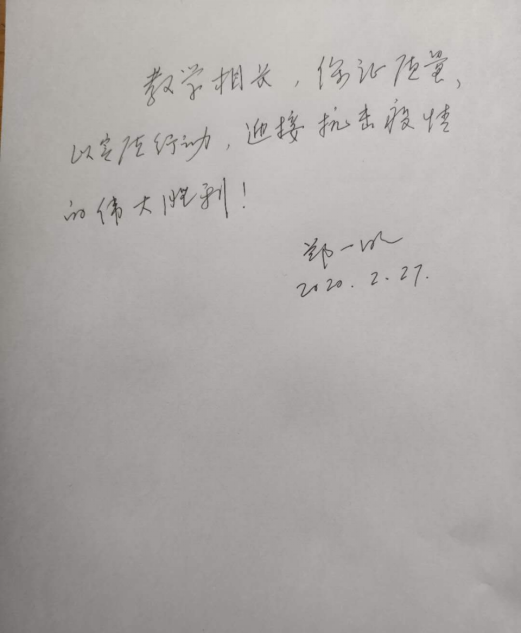 教学相长，保证质量，
以实际行动，迎接抗击疫情
的伟大胜利！
郑一
2020.2.27.